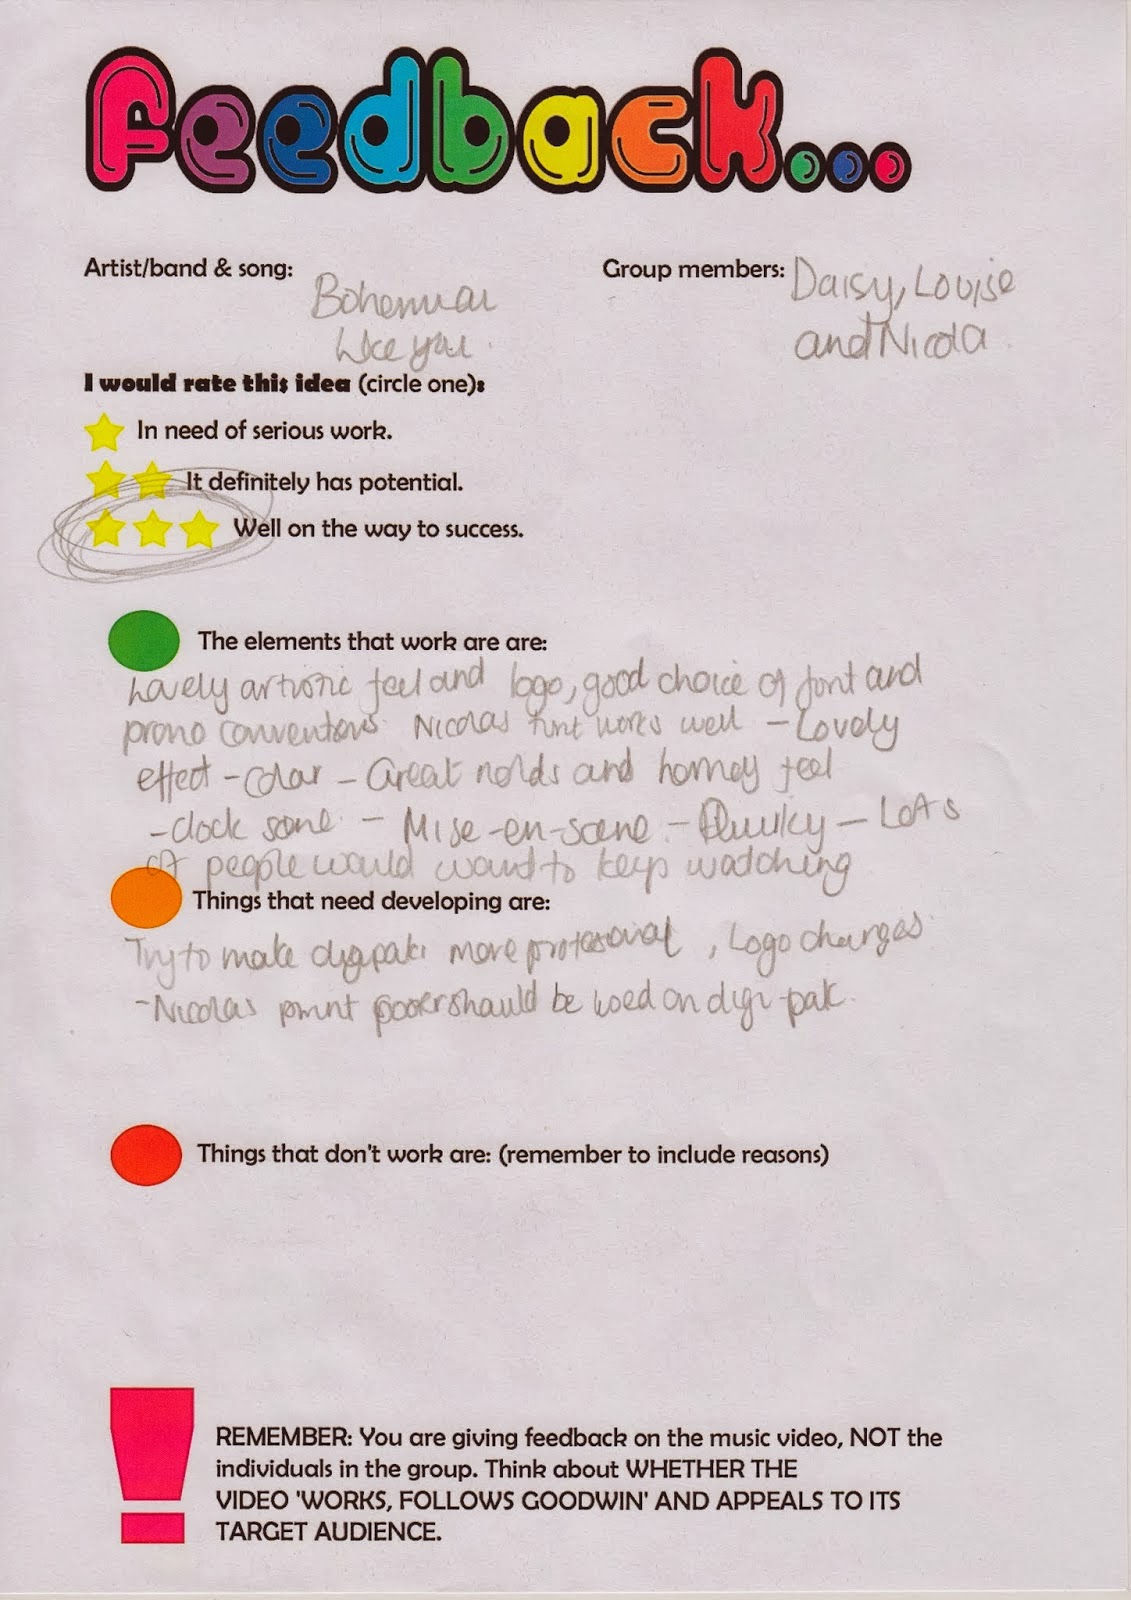 Feedback...
Artist/band & song:
Bohemian
Like you.
Group members:
Daisy, Louise
and Nicola.
I would rate this idea (circle one):
In need of serious work.
It definitely has potential.
Well on the way to success.
The elements that work are are:
Lovely artistic feel and logo, good choice of font and
promo conventions Nicolas works well - Lovely
effect - colour - Great and homey feel
- clock - Mise-en-scene - Quirky - Lots
of people would want to keep watching
Things that need developing are:
Try to make digipak more professional, Logo changes
- Nicolas should be used on digi-pak.
Things that don't work are: (remember to include reasons)
REMEMBER: You are giving feedback on the music video, NOT the
individuals in the group. Think about WHETHER THE
VIDEO 'WORKS, FOLLOWS GOODWIN' AND APPEALS TO ITS
TARGET AUDIENCE.